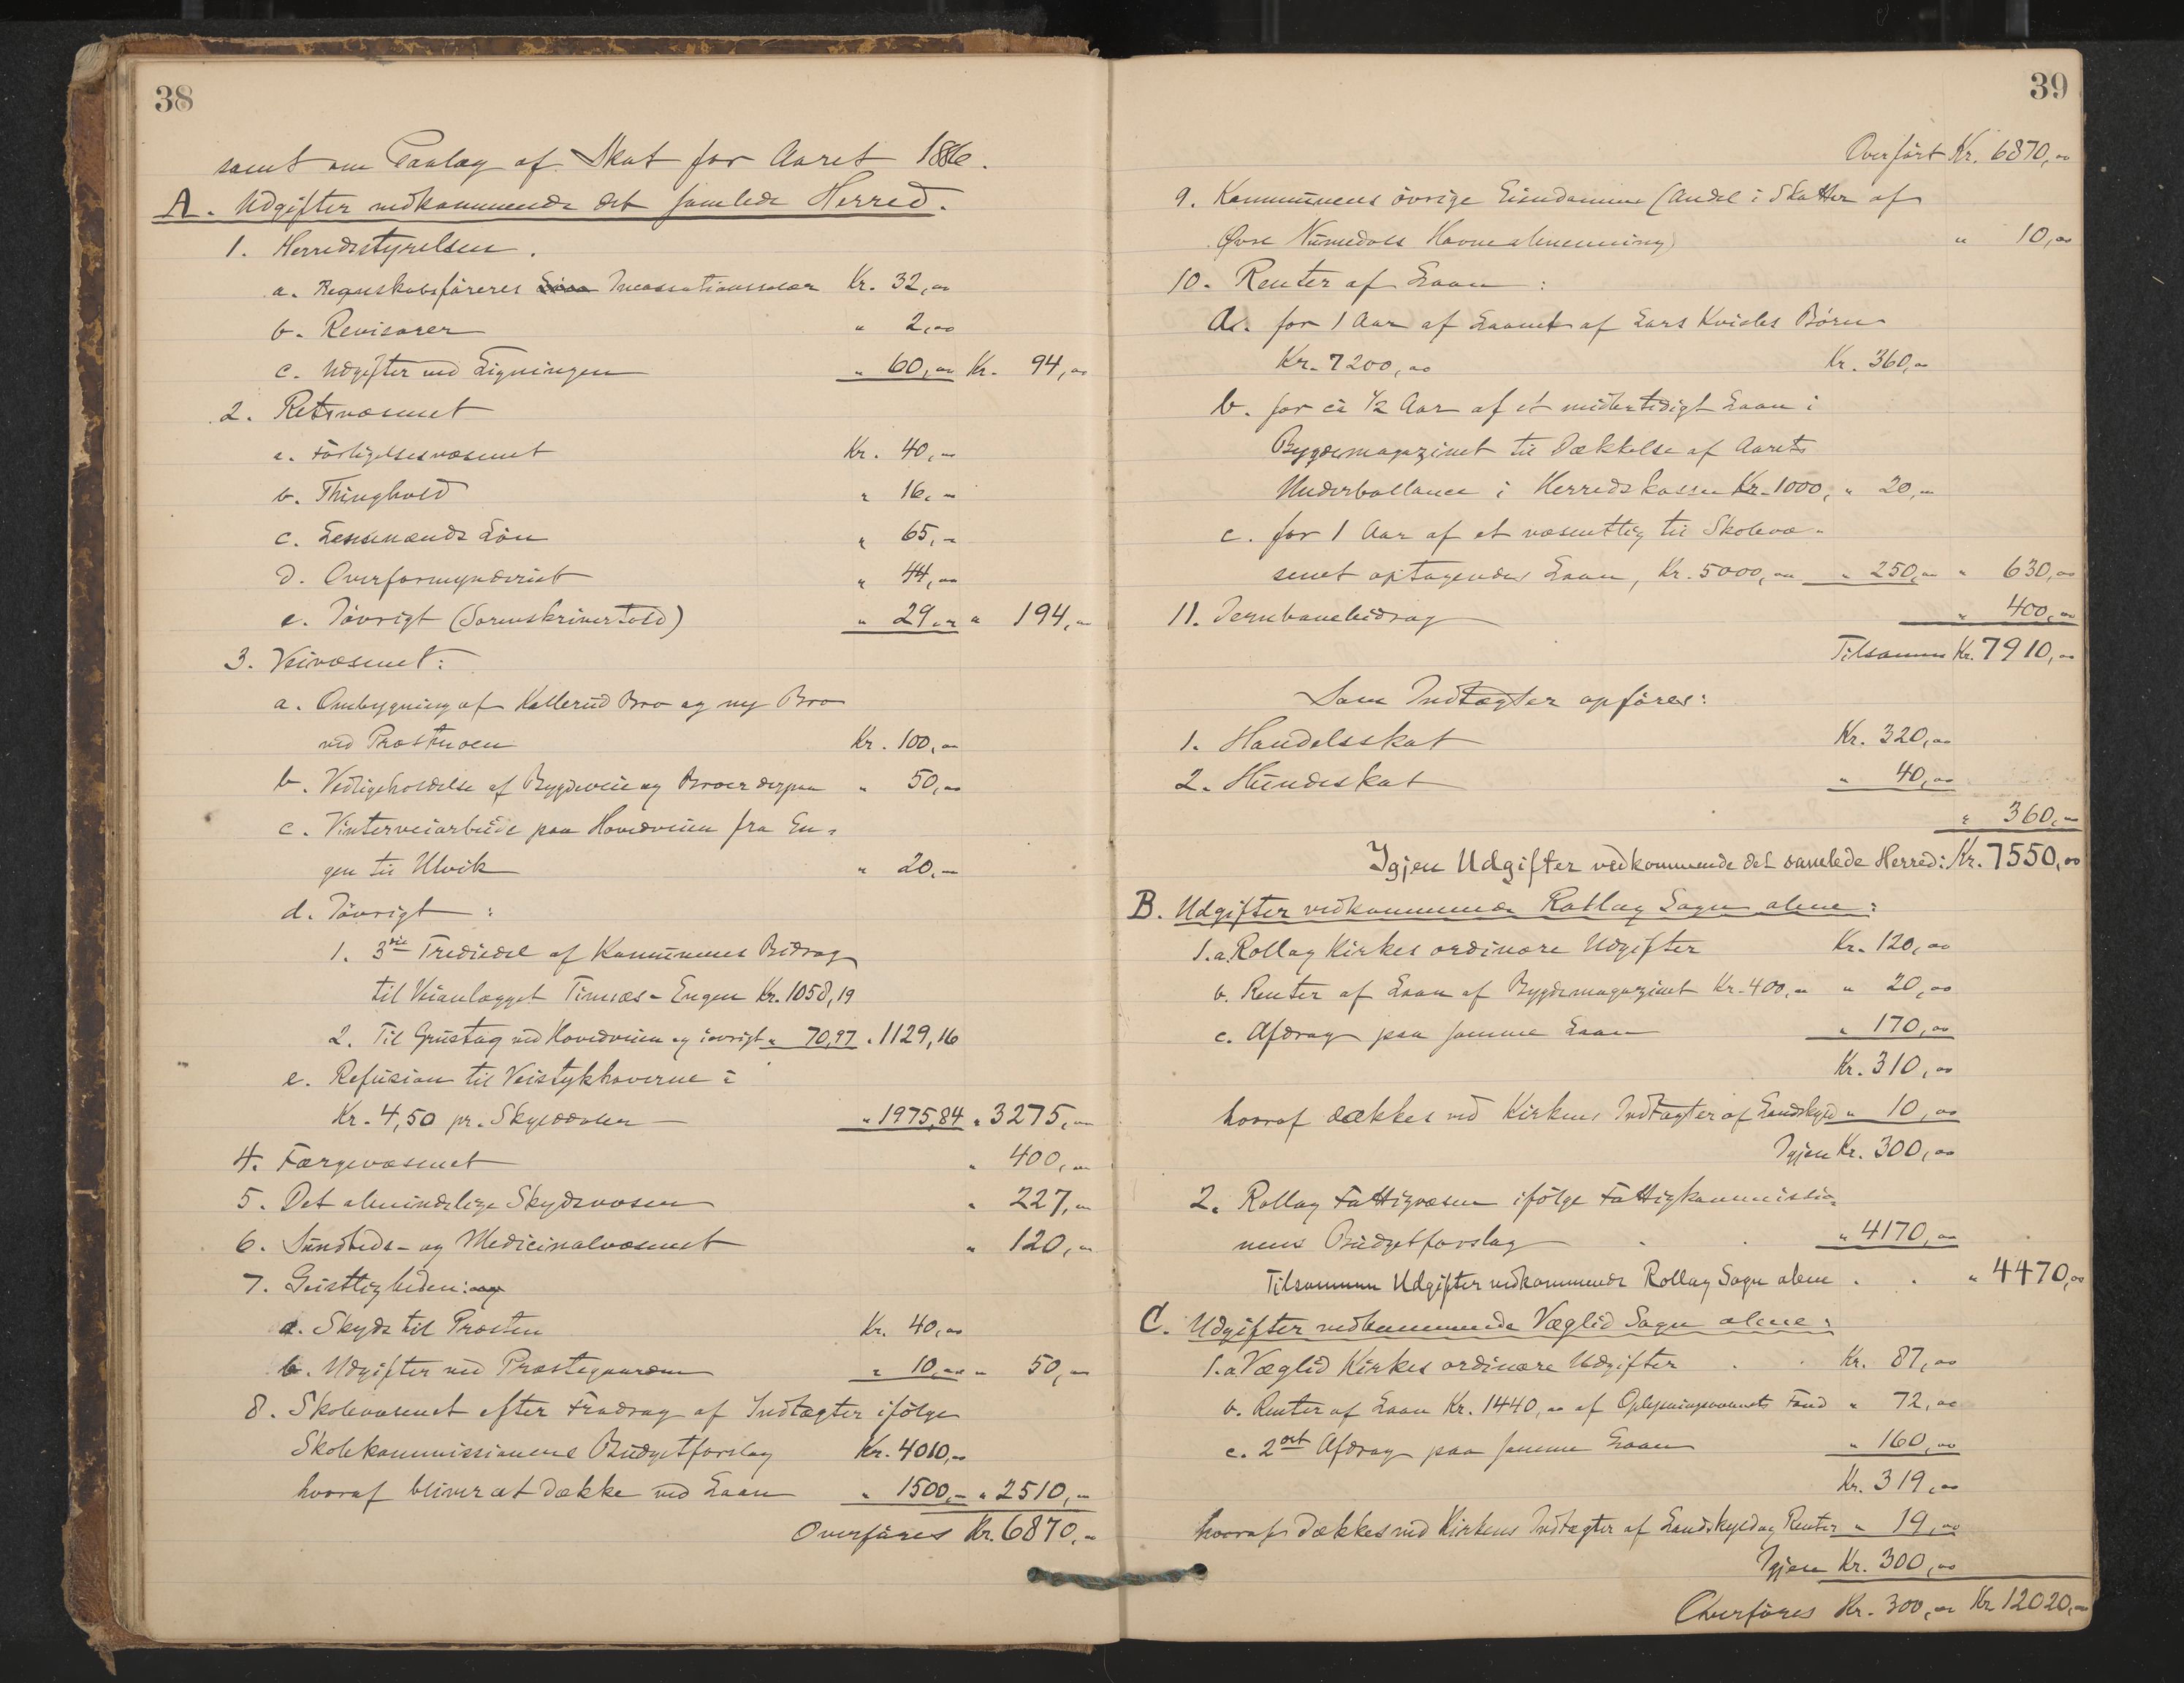 38
samt om Paalæg af Skat for Aaret 1886.
A. Udgifter vedkommende det samlede Herred.
1. Herredsstyrelsen.
a. Regnskabsførerens Incassationssalær Kr. 32,00
b. Revisorer " 2,00
c. Udgifter ved Ligningen " 60,00 Kr. 94,00
2. Retsvæsenet
a. Forligelsesvæsenet Kr. 40,00
b. Thinghold " 16,00
c. Lensmands Løn " 65,00
d. Overformynderiet " 44,00
e. Iøvrigt (Sorenskrivertold) " 29,00 " 194,00
3. Veivæsenet:
a. Ombygning af Kallerud Bro og ny Bro
ved Prostmoen Kr. 100,00
b. Vedligeholdelse af Bygdeveie og Broer derpaa " 50,00
c. Vinterveiarbeide paa Hovedveien fra En-
gen til Ulvik " 20,00
d. Iøvrigt:
1. 3die Trediedel af Kommunens Bidrag
til Veianlægget Timnæs-Engen Kr. 1058,19
2. Til Grustag ved Hovedveien og iøvrigt " 70,97 " 1129,16
e. Refusion til Veistykhaverne à
Kr. 4,50 pr. Skylddaler " 1975,84 " 3275,00
4. Færgevæsenet " 400,00
5. Det almindelige Skydsvæsen " 227,00
6. Sundheds- og Medicinalvæsenet " 120,00
7. Geistligheden:
a. Skyds til Provsten Kr. 40,00
b. Udgifter ved Præstegaarden " 10,00 " 50,00
8. Skolevæsenet efter Fradrag af Indtægter ifølge
Skolekommissionens Budgetforslag Kr. 4010,00
hvoraf bliver at dække ved Laan " 1500,00 " 2510,00
Overføres Kr. 6870,00
39
Overført Kr. 6870,00
9. Kommunens øvrige Eiendomme (Andel i Skatter af
Øvre Numedals Havnealmenning) " 10,00
10. Renter af Laan:
a. for 1 Aar af Laanet af Lars Kvisles Børn
Kr. 7200,00 Kr. 360,00
b. for ca ½ Aar af et midlertidigt Laan i
Bygdemagazinet til Dækkelse af Aarets
Underballance i Herredskassen Kr. 1000, " 20,00
c. for 1 Aar af et væsentlig til Skolevæ-
senet optagendes Laan, Kr. 5000,00 " 250,00 " 630,00
11. Jernbanebidrag " 400,00
Tilsammen Kr. 7910,00
Som Indtægter opføres:
1. Handelsskat Kr. 320,00
2. Hundeskat " 40,00
" 360,00
Igjen Udgifter vedkommende det samlede Herred: Kr. 7550,00
B. Udgifter vedkommende Rollag Sogn alene:
1.a. Rollag Kirkes ordinære Udgifter Kr. 120,00
b. Renter af Laan af Bygdemagazinet Kr. 400,00 " 20,00
c. Afdrag paa samme Laan " 170,00
Kr. 310,00
hvoraf dækkes ved Kirkens Indtægter af Landskyld " 10,00
Igjen Kr. 300,00
2. Rollag Fattigvæsen ifølge Fattigkommissio-
nens Budgetforslag " 4170,00
Tilsammen Udgifter vedkommende Rollag Sogn alene . . " 4470,00
C. Udgifter vedkommende Væglid Sogn alene:
1.a Væglid Kirkes ordinære Udgifter . . Kr. 87,00
b. Renter af Laan Kr. 1440,00 af Oplysningsvæsenets Fond " 72,00
c. 2det Afdrag paa samme Laan " 160,00
Kr. 319,00
hvoraf dækkes ved Kirkens Indtægter af Landskyld og Renter " 19,00
Igjen Kr. 300,00
Overføres Kr. 300,00 Kr. 12020,00